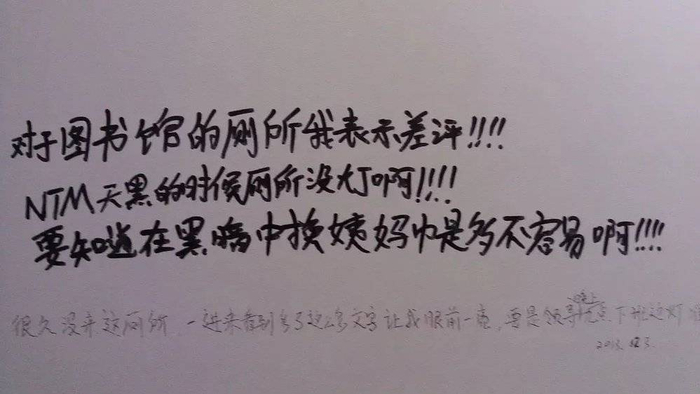 对于图书馆的厕所我表示差评!!!!
NTM天黑的时候厕所没灯啊!!!!
要知道在黑暗中换姨妈巾是多不容易啊!!!!
很久没来这厕所 一进来看到多了这么多文字让我眼前一亮,要是领导晚上下班这灯
2013. 12. 3